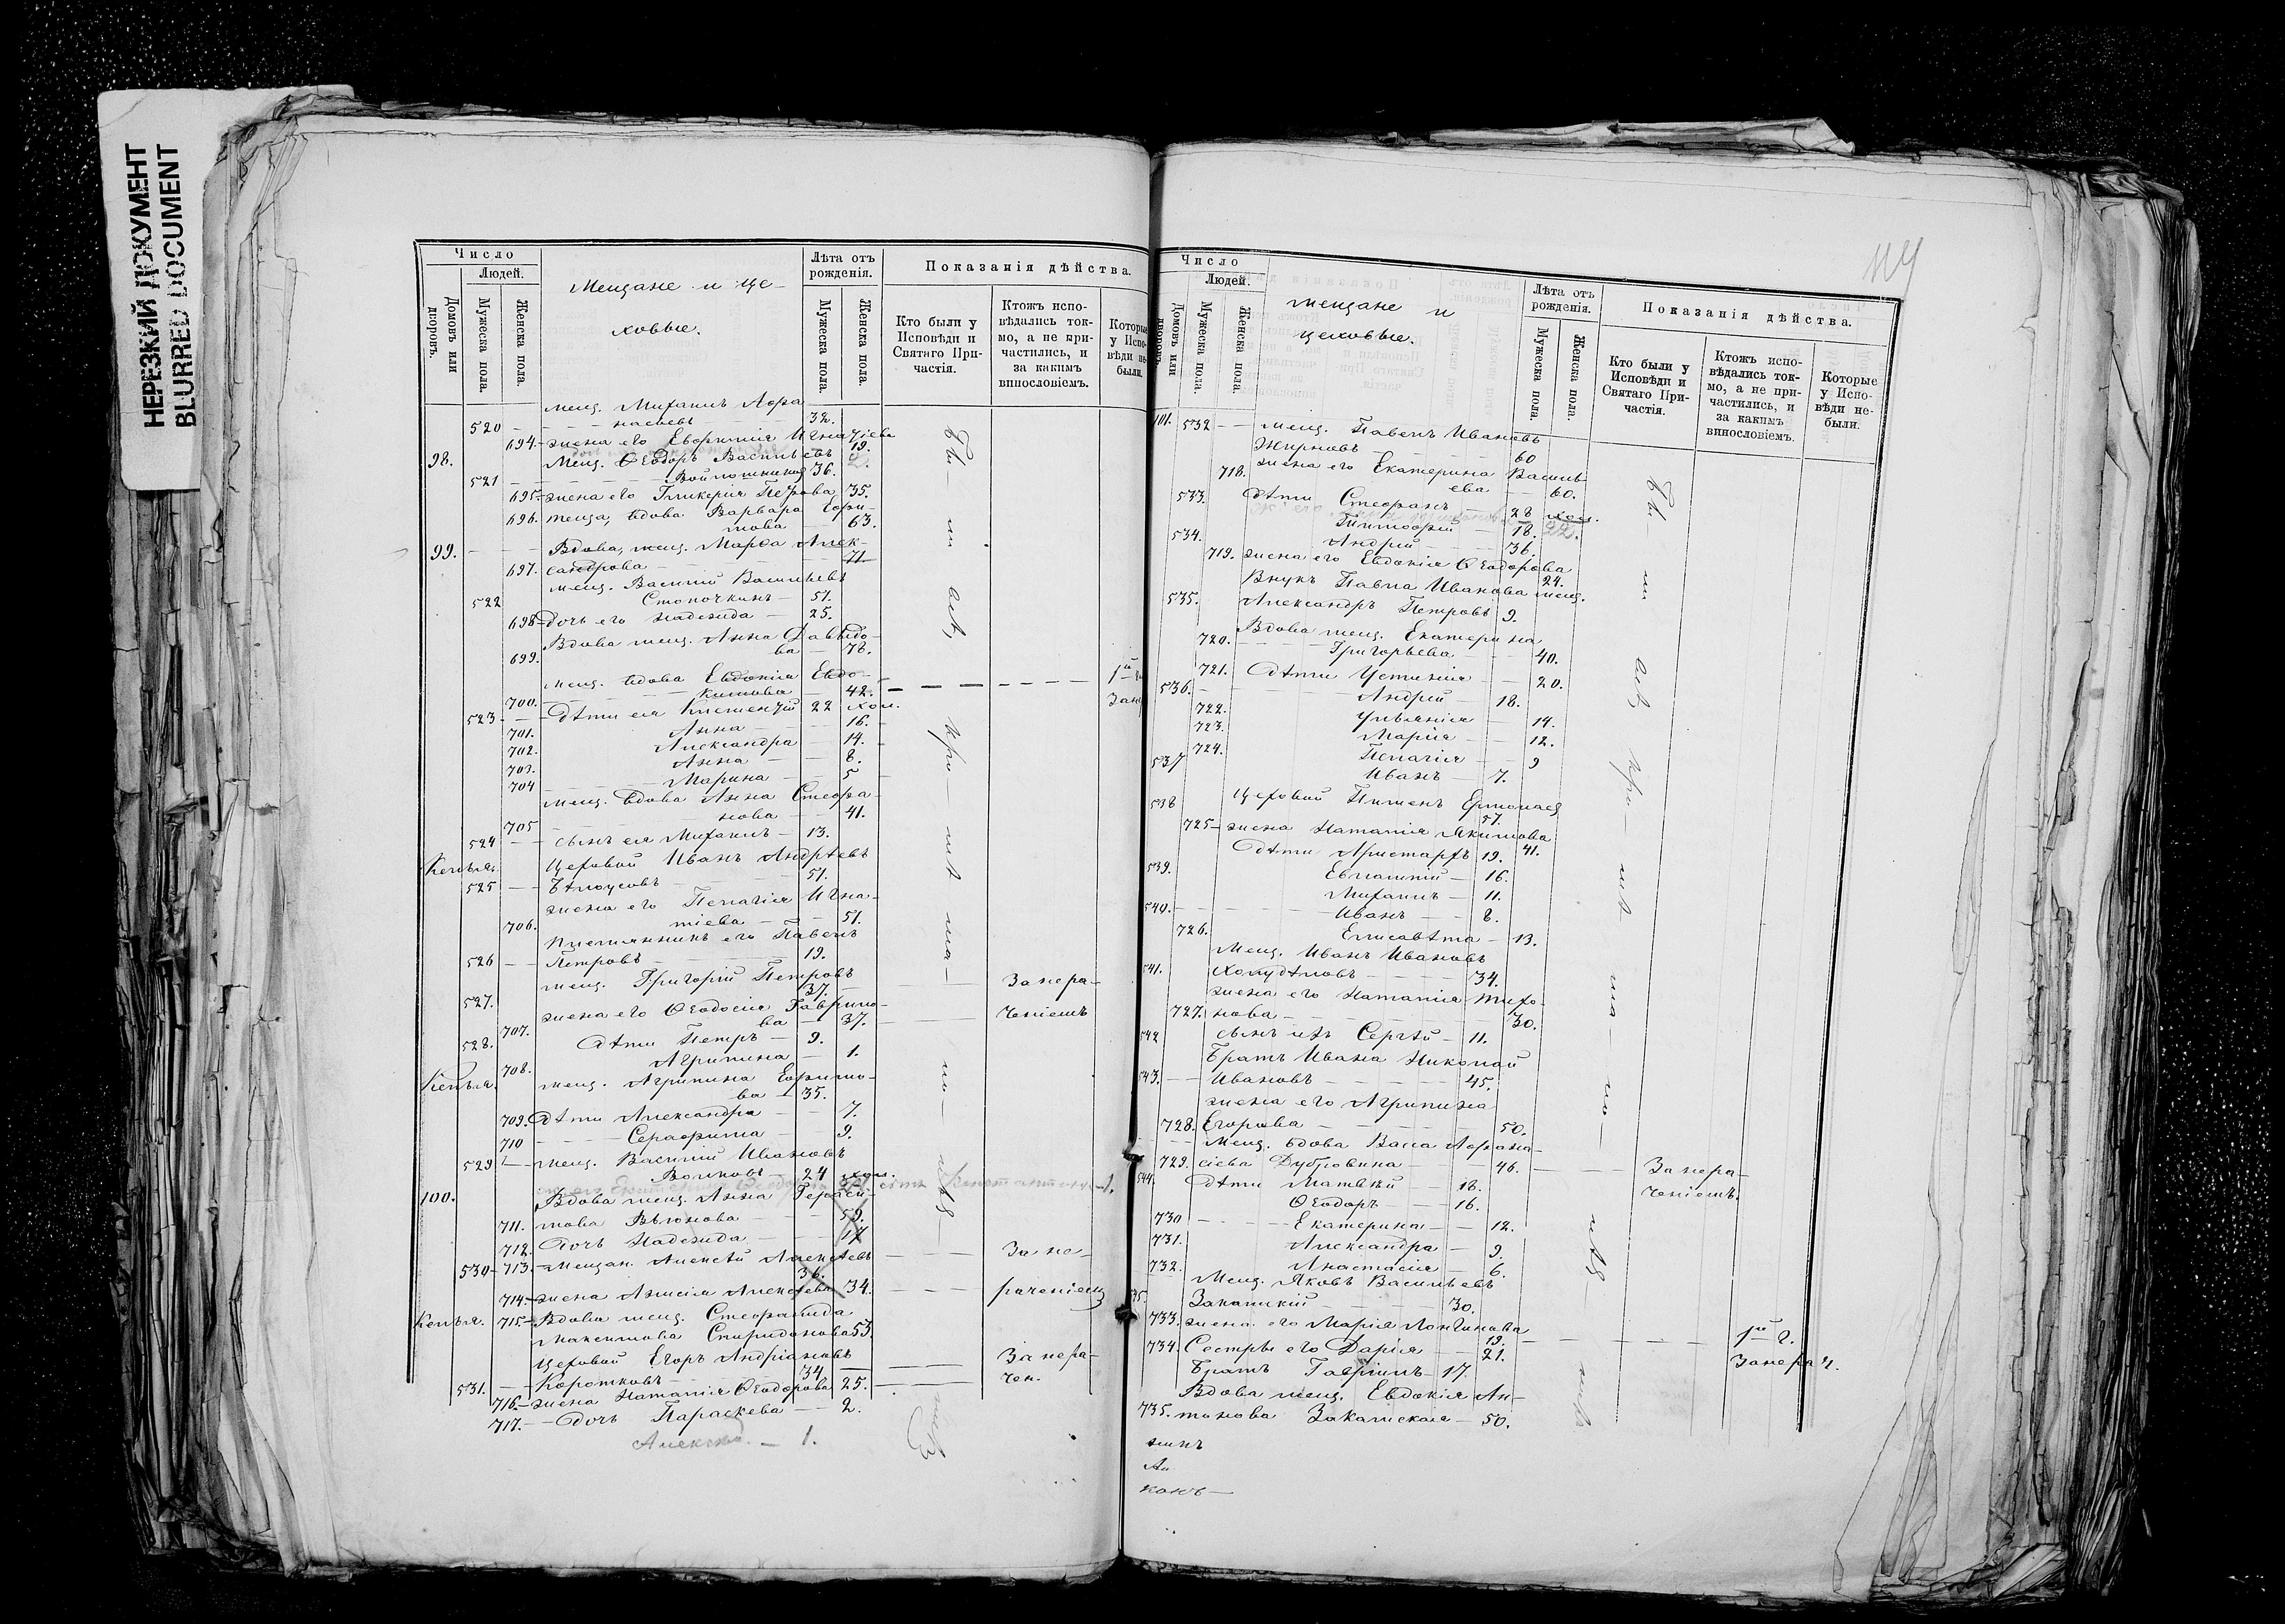 НЕРЕЗКИЙ ДОКУМЕНТ
BLURRED DOCUMENT
Число
Людей.
Домовъ или дворовъ.
Мужеска пола.
Женска пола.
Мещане и це-
ховые.
Лѣта отъ рожденія.
Мужеска пола.
Женска пола.
Показанія дѣйства.
Кто были у Исповѣди и Святаго При-частія.
Ктожъ испо-вѣдались ток-мо, а не при-частились, и за какимъ винословіемъ.
Которые у Испо-вѣди не были.
мещ. Михаилъ Афра
520 — насьевъ — 32.
694. жена его Евфимія Игнатіева 19.
98. Мещ. Ѳеодоръ Васильевъ
521 — Войлошников 36.
695. жена его Гликерія Петрова 35.
696. теща, вдова Варвара Ефи-
мова — 63.
99. — Вдова, мещ. Марѳа Алек-
697. сандрова — 71.
мещ. Василий Васильевъ
522 Стопочкинъ — 51.
698 дочь его Надежда — 25.
Вдова мещ. Анна Давыдо-
699. ва — 78.
мещ. вдова Евдокія Евдо-
700. кимова — 42.
523 — Дѣти ея Климентій 22 хол.
701. Анна — 16.
702. Александра — 14.
703. Анна — 8.
704 Марина — 5
мещ. вдова Анна Стефа-
705 нова — 41.
524 — сынъ ея Михаилъ — 13.
Келья. Цеховой Иванъ Андрѣевъ
525 — Бѣлоусовъ — 51.
жена его Пелагія Игна-
706. тіева — 51.
Племянникъ его Павелъ
526 — Петровъ — 19.
мещ. Григорій Петровъ
527. 37. — За нера-
жена его Ѳеодосія Гаврило-
707. ва — 37. — ченіемъ
528. Дѣти Петръ — 9.
708. Агрипина — 1.
Келья. мещ. Агрипина Ефимо-
ва — 35.
709. Дѣти Александра — 7.
710 — Серафима — 9.
529 — мещ. Василій Ивановъ
Волковъ — 24 хол.
100. Вдова мещ. Анна Гераси-
711. мова Вьюнова — 59.
712. Дочь Надежда — 17
530 — 713. Мещан. Алексѣй Алексѣевъ
36. За не-
714. жена Анисія Алексѣева 34. — раченіем
Келья. 715. Вдова мещ. Стефанида
Максимова Спиридонова 53.
Цеховой Егоръ Андріановъ
531. — Коротковъ — 34 — За нера-
716. жена Наталія Ѳеодорова 25. чен.
717. — Дочь Параскева — 2.
Александ. — 1.
114
Число
Людей.
Домовъ или дворовъ.
Мужеска пола.
Женска пола.
Мещане и
цеховые.
Лѣта отъ рожденія.
Мужеска пола.
Женска пола.
Показанія дѣйства.
Кто были у Исповѣди и Святаго При-частія.
Ктожъ испо-вѣдались ток-мо, а не при-частились, и за какимъ винословіемъ.
Которые у Испо-вѣди не-были.
101. 532 — мещ. Павелъ Ивановъ
Жирновъ — 60
718. жена его Екатерина Василь-
ева — 60.
533. Дѣти Стефанъ — 28 хол.
Тимофей — 18.
534. Андрей — 36.
719. жена его Евдокія Ѳеодорова
24.
Внукъ Павла Иванова мещ.
535. Александръ Петровъ 9.
Вдова мещ. Екатерина
720. Григорьева — 40.
721. Дѣти Устинія — 20.
536. Андрей — 18.
722. Ульянія — 14.
723. Марія — 12.
724. Пелагія — 9
537 Иванъ — 7.
538 Цеховой Пименъ Ермолаев
57.
725 — жена Наталія Якимова
41.
Дѣти Аристархъ 19.
539. Евлампій — 16.
Михаилъ — 11.
540. — Иванъ — 8.
726. Елисавѣта — 13.
Мещ. Иванъ Ивановъ
541. Холудѣловъ — 34.
жена его Наталія Тихо-
727. нова — 30.
542 сынъ ихъ Сергѣй — 11.
Братъ Ивана Николай
543. — Ивановъ — 45.
жена его Агрипина
728. Егорова — 50.
— Мещ. вдова Васса Афана-
729. сіева Дубровина — 46. — За нера-
544 Дѣти Матвѣй — 18. ченіемъ.
Ѳеодоръ — 16.
730 — Екатерина — 12.
731. Александра — 9.
732. Анастасія — 6.
Мещ. Яковъ Васильевъ
Закамскій — 30.
733. жена его Марія Лонгинова
19. 1й г.
734. Сестры его Дарія — 21. Занерач.
Братъ Гавріилъ — 17.
Вдова мещ. Евдокія Ан-
735. тонова Закамская — 50.